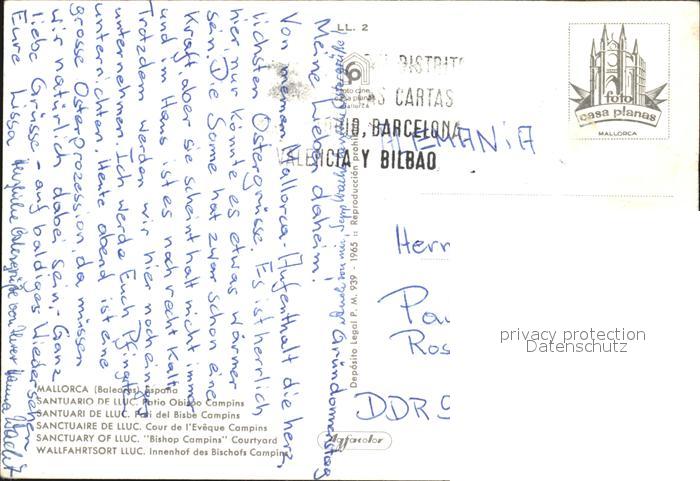 LL. 2
DISTRITO
AS CARTAS
MADRID, BARCELONA
VALENCIA Y BILBAO
foto
casa planas
MALLORCA
foto cine
casa planas
Depósito Legal P. M. 939 - 1965 :: Reproducción prohi
ALEMANIA
Herr
Pau
Ros
DDR 9
privacy protection
Datenschutz
Agfacolor
Gründonnerstag
Meine Lieben daheim!
Von meinem Mallorca-Aufenthalt die herz-
lichsten Ostergrüsse. Es ist herrlich
hier, nur könnte es etwas wärmer
sein. Die Sonne hat zwar schon eine
Kraft, aber sie scheint halt nicht immer
und im Haus ist es noch recht kalt.
Trotzdem werden wir hier noch einiges
unternehmen. Ich werde Euch Pfingsten
unterrichten. Heute abend ist eine
grosse Osterprozession, da müssen
wir natürlich dabei sein. - Ganz
liebe Grüsse - auf baldiges Wiedersehen
Eure Lissa
Herzliche Ostergrüße von Eurer Hanna
MALLORCA (Baleares) España
SANTUARIO DE LLUC. Patio Obispo Campins
SANTUARI DE LLUC. Pati del Bisbe Campins
SANCTUAIRE DE LLUC. Cour de l'Evêque Campins
SANCTUARY OF LLUC. "Bishop Campins" Courtyard
WALLFAHRTSORT LLUC. Innenhof des Bischofs Campins